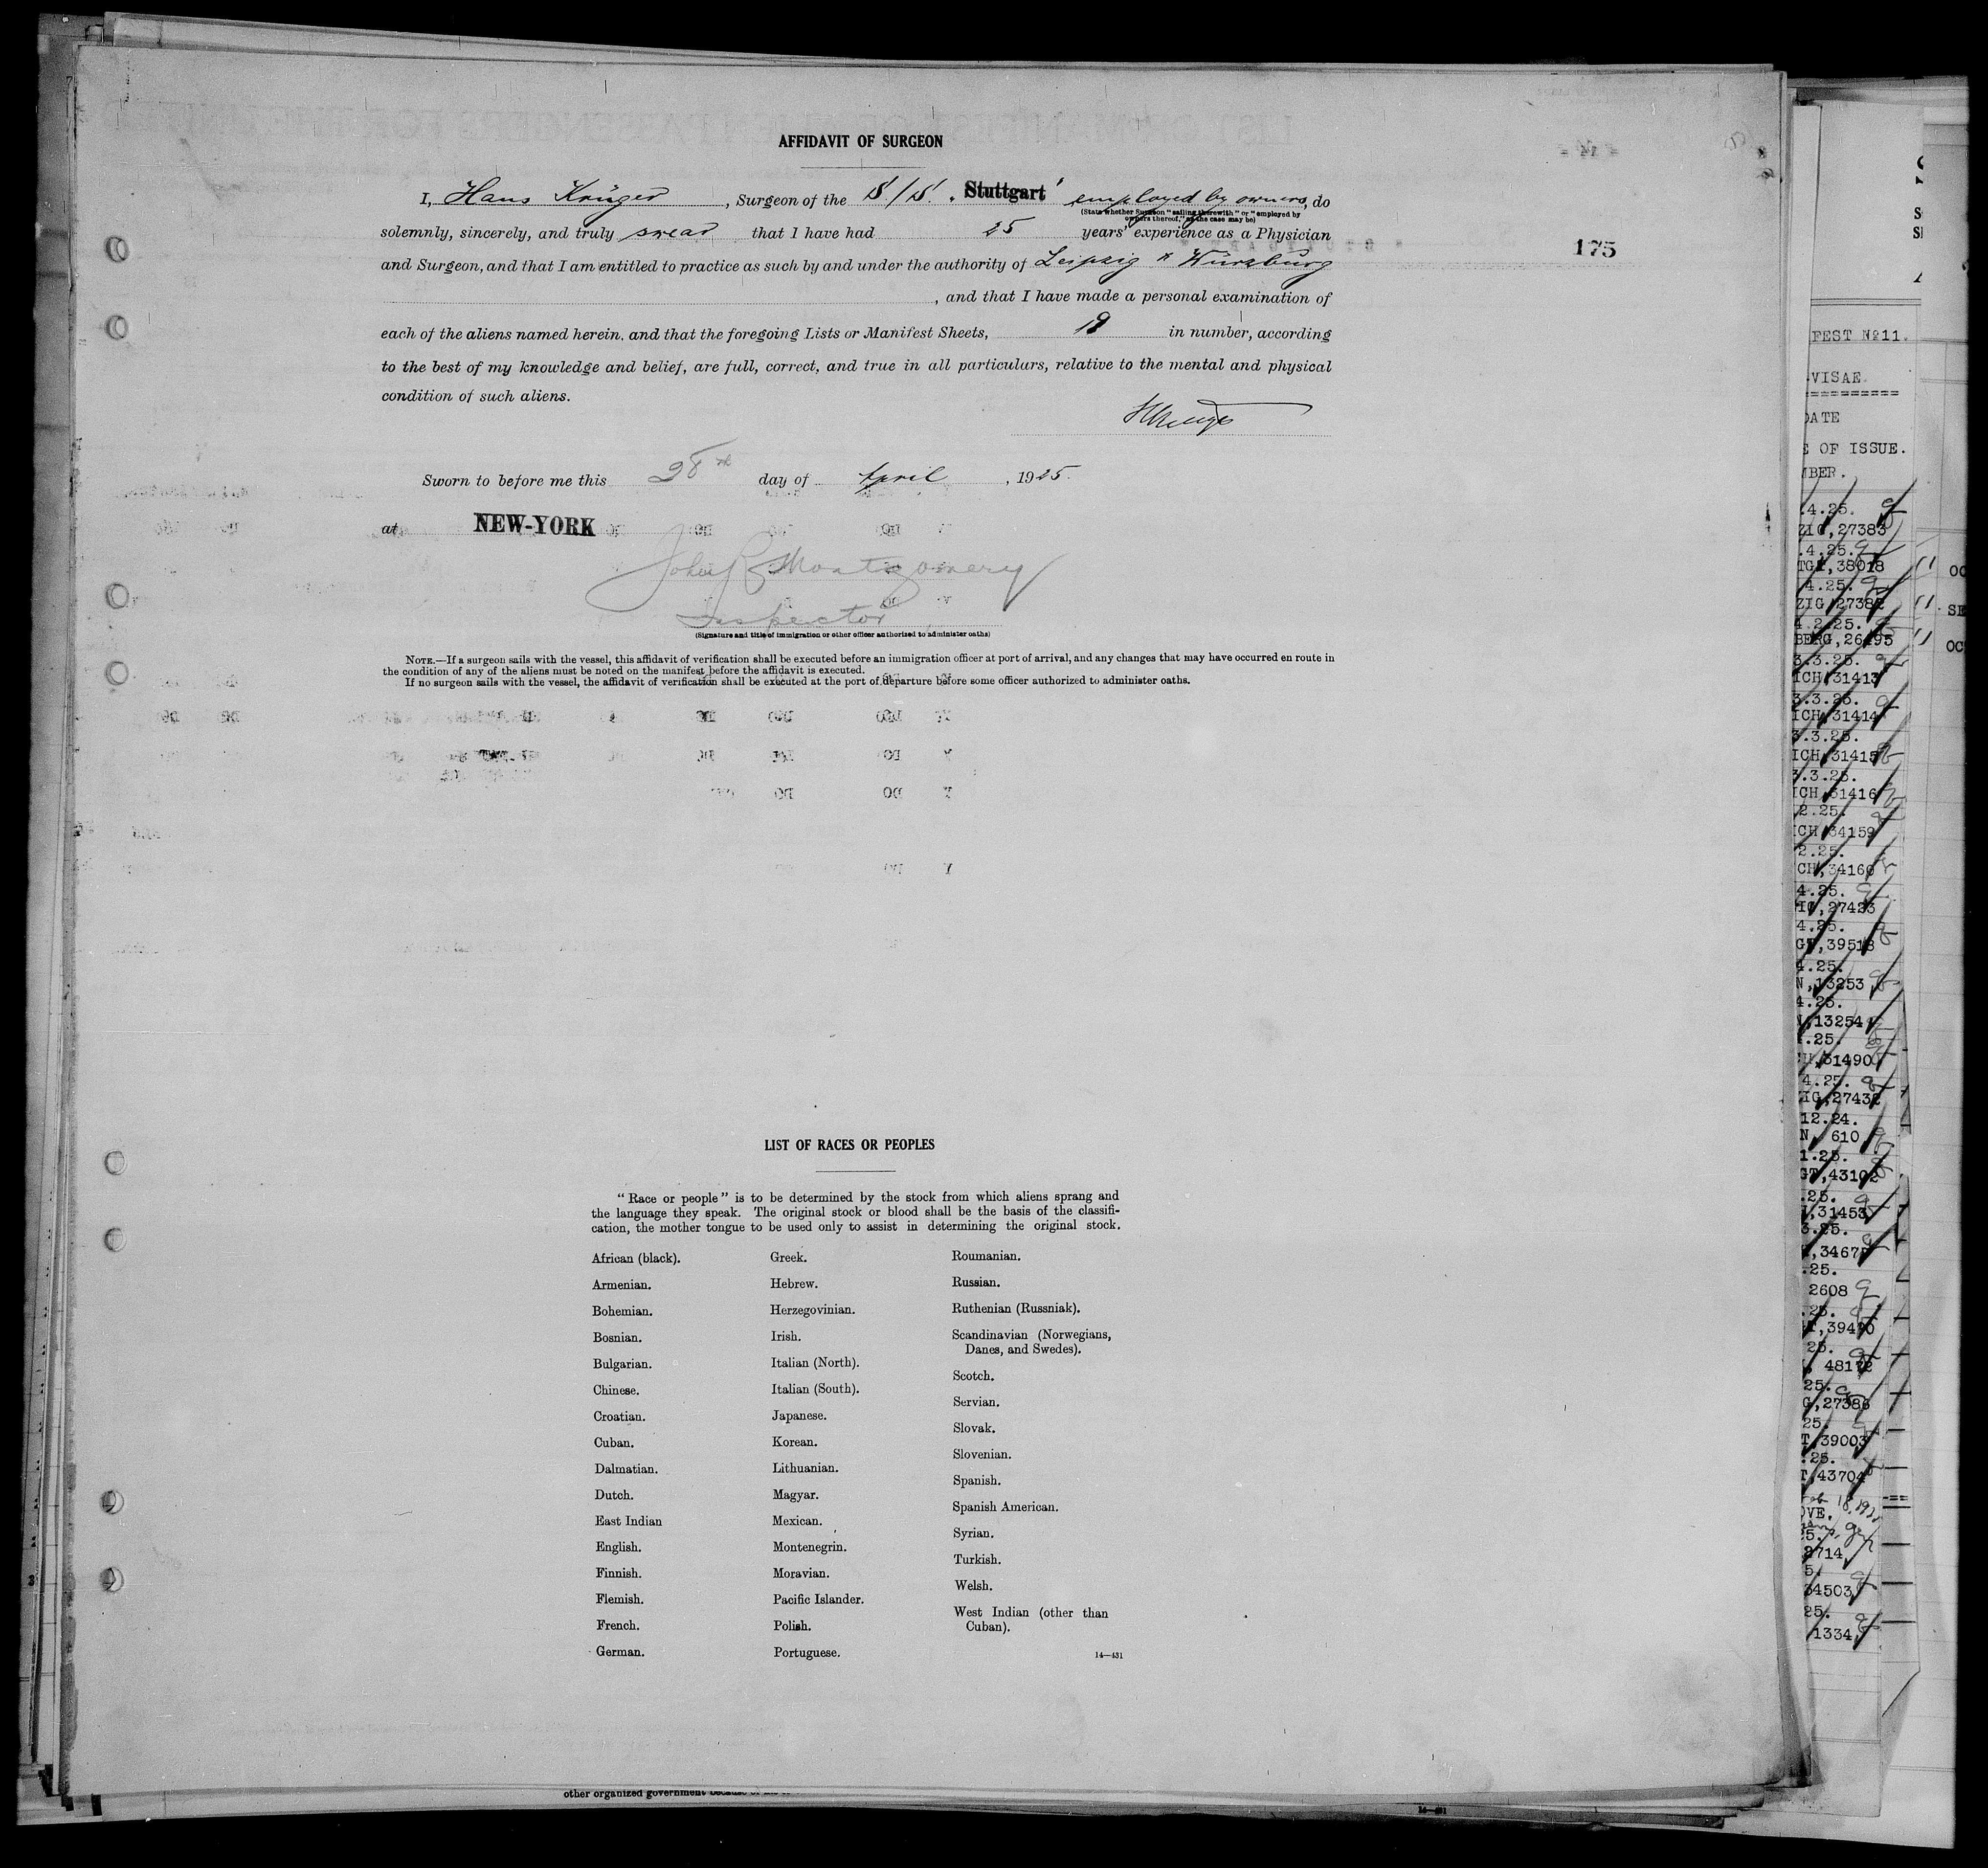 AFFIDAVIT OF SURGEON
I, Hans Krüger, Surgeon of the S/S. "Stuttgart" employed by owners, do
(State whether Surgeon "sailing therewith" or "employed by owners thereof," as the case may be)
solemnly, sincerely, and truly swear that I have had 25 years' experience as a Physician
175
and Surgeon, and that I am entitled to practice as such by and under the authority of Leipzig & Würzburg
, and that I have made a personal examination of
each of the aliens named herein, and that the foregoing Lists or Manifest Sheets, in number, according
to the best of my knowledge and belief, are full, correct, and true in all particulars, relative to the mental and physical
condition of such aliens.
Sworn to before me this 28th day of April, 1925.
at NEW-YORK
John R Montgomery
Inspector
(Signature and title of immigration or other officer authorized to administer oaths)
NOTE.—If a surgeon sails with the vessel, this affidavit of verification shall be executed before an immigration officer at port of arrival, and any changes that may have occurred en route in
the condition of any of the aliens must be noted on the manifest before the affidavit is executed.
If no surgeon sails with the vessel, the affidavit of verification shall be executed at the port of departure before some officer authorized to administer oaths.
LIST OF RACES OR PEOPLES
"Race or people" is to be determined by the stock from which aliens sprang and
the language they speak. The original stock or blood shall be the basis of the classifi-
cation, the mother tongue to be used only to assist in determining the original stock.
African (black).
Armenian.
Bohemian.
Bosnian.
Bulgarian.
Chinese.
Croatian.
Cuban.
Dalmatian.
Dutch.
East Indian
English.
Finnish.
Flemish.
French.
German.
Greek.
Hebrew.
Herzegovinian.
Irish.
Italian (North).
Italian (South).
Japanese.
Korean.
Lithuanian.
Magyar.
Mexican.
Montenegrin.
Moravian.
Pacific Islander.
Polish.
Portuguese.
Roumanian.
Russian.
Ruthenian (Russniak).
Scandinavian (Norwegians,
Danes, and Swedes).
Scotch.
Servian.
Slovak.
Slovenian.
Spanish.
Spanish American.
Syrian.
Turkish.
Welsh.
West Indian (other than
Cuban).
14—431
other organized government because of
FEST Nº11.
VISAE.
DATE
E OF ISSUE.
MBER.
.4.25.
ZIG,27383
.4.25.
TGT,38018
4.25.
ZIG,27382
4.2.25.
BERG,26495
3.3.25.
ICH,31413
3.3.25.
ICH,31414
3.3.25.
ICH,31415
3.3.25.
ICH,31416
2.25.
ICH,34159
2.25.
CH,34160
4.25.
IG,27423
4.25.
GT,39518
4.25.
N,13253
4.25.
N,13254
.25.
H,31490
4.25.
ZIG,27432
12.24.
N, 610
1.25.
GT,43102
.25.
,31453
3.25.
,3467
.25.
2608
.25.
T,39470
25.
48172
25.
G,27386
25.
T,39003
.25.
T,43704
OVE.
5.
2714
5.
34503
25.
1334